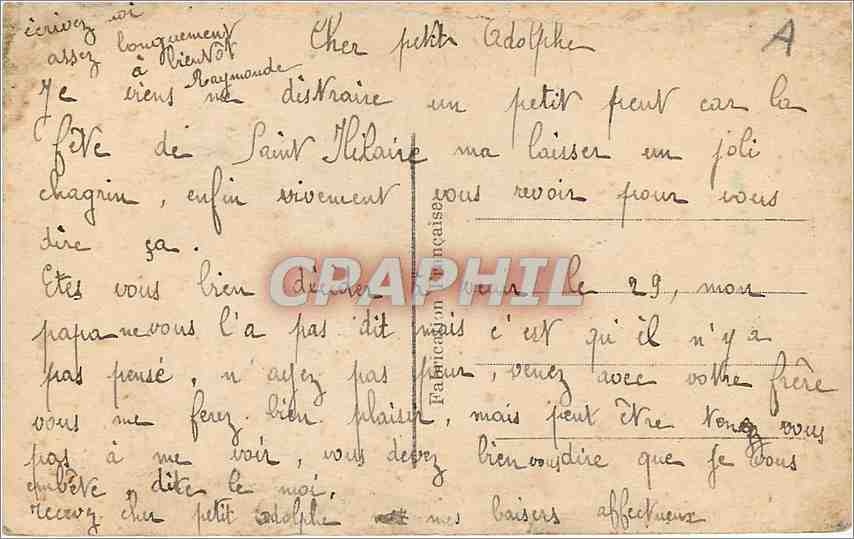 Cher petit Adolphe
A
Je viens me distraire un petit peut car la
fête de Saint Hilaire ma laisser un joli
chagrin, enfin vivement vous revoir pour vous
dire ça.
Etes vous bien décider à venir le 29, mon
papa ne vous l'a pas dit mais c'est qu'il n'y a
pas pensé, n'ayez pas peur, venez avec votre frère
vous me ferez bien plaisir, mais peut être tenez vous
pas à me voir, vous devez bien vous dire que je vous
embête, dite le moi.
recevez cher petit Adolphe mes baisers affectueux
écrivez moi
assez longuement
à bientôt
Raymonde
Fabrication Française
CPAPHIL